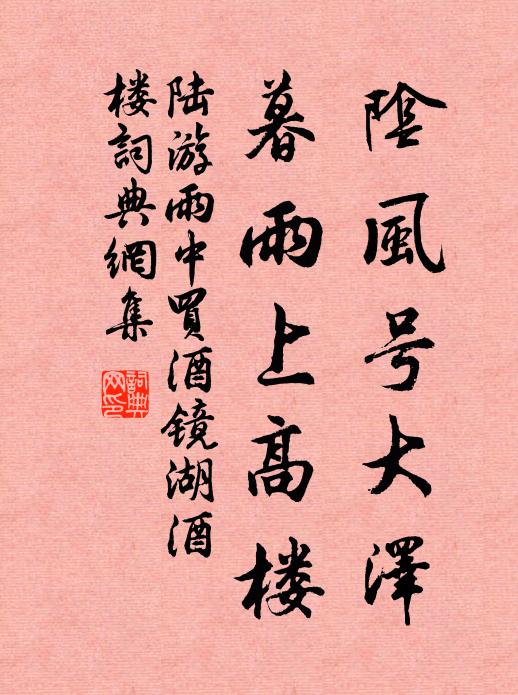 陰風号大澤
暮雨上高楼
陆游雨中買酒镜湖酒
楼詞典網集
詞典
网印